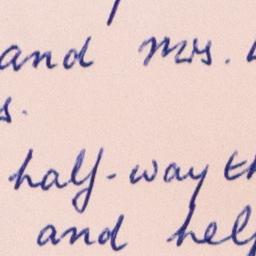 and Mrs.
s.
half-way th
and hel